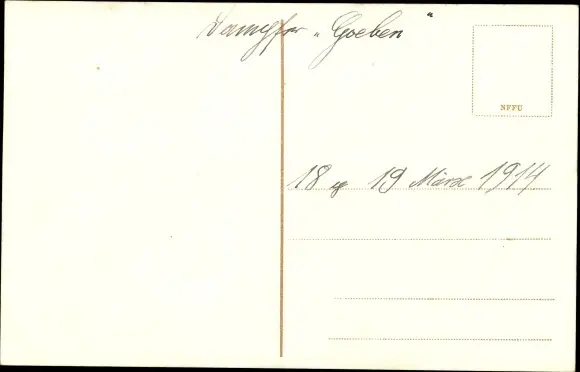 Dampfer „Goeben“
NEFU
18 u 19 März 1914